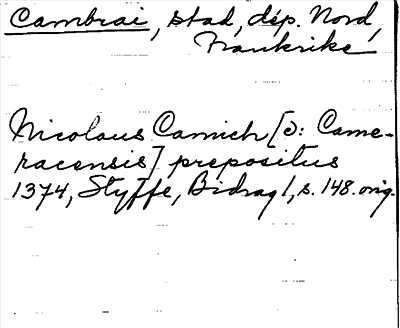 Cambrai, stad, dép. Nord,
Frankrike
Nicolaus Camich [ɔ: Came-
racensis] prepositus
1374, Styffe, Bidrag 1, s. 148. orig.